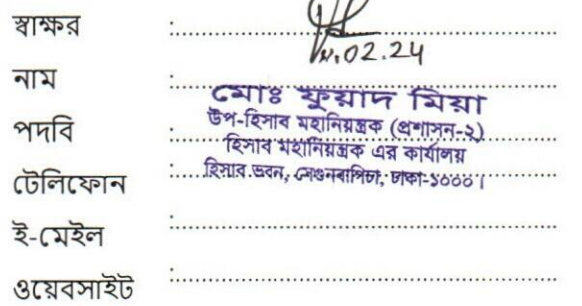 স্বাক্ষর :
.02.24
নাম :
মোঃ ফুয়াদ মিয়া
পদবি :
উপ-হিসাব মহানিয়ন্ত্রক (প্রশাসন-২)
হিসাব মহানিয়ন্ত্রক এর কার্যালয়
টেলিফোন :
হিসাব ভবন, সেগুনবাগিচা, ঢাকা-১০০০।
ই-মেইল :
ওয়েবসাইট :